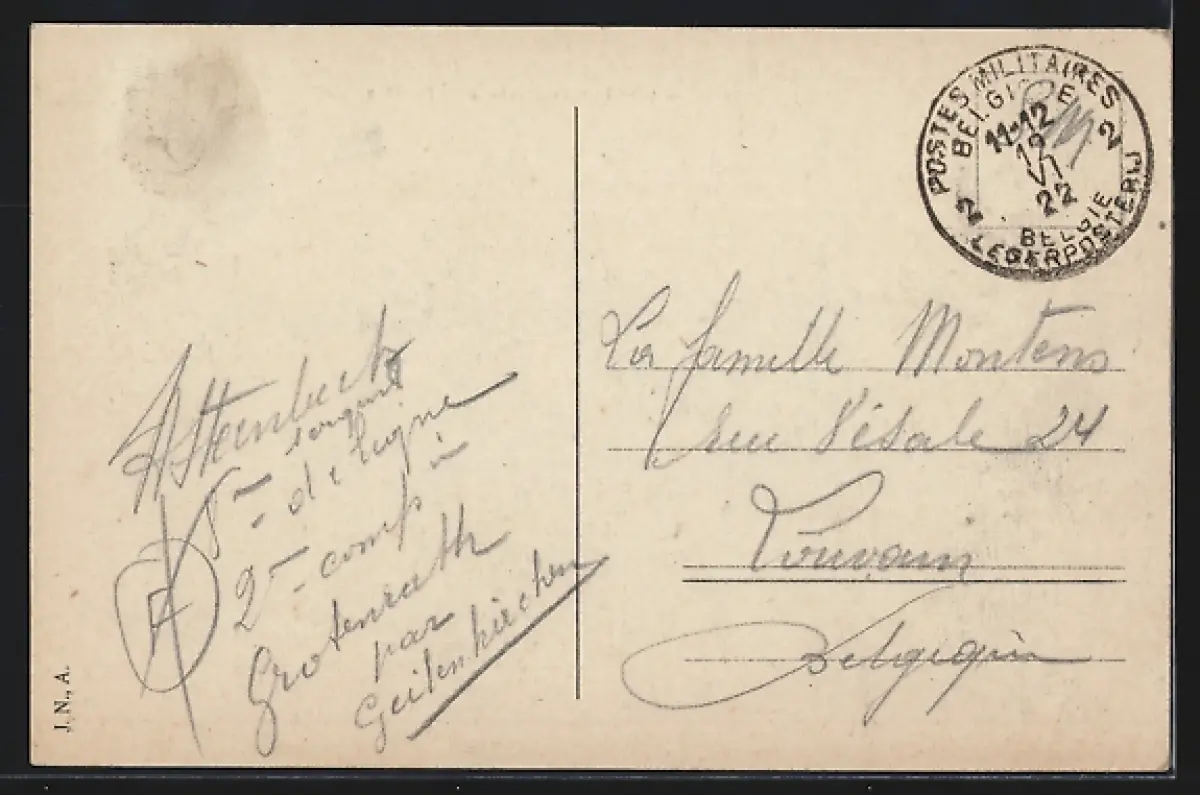 POSTES MILITAIRES 2
BELGIQUE
11-12
19
VI
22
2
BELGIE
LEGERPOSTERIJ
SM
La famille Montens
rue Vésale 24
Louvain
Belgique
Steenbeck
sergent
8me de ligne
2me comp à
Grotenrath
par
Geilenkirchen
F
J.N., A.